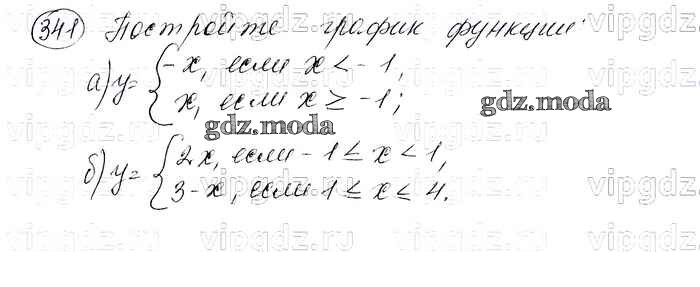 341 Постройте график функции:
а) y = { -x, если x < -1,
x, если x ≥ -1;
gdz.moda
gdz.moda
б) y = { 2x, если -1 ≤ x < 1,
3-x, если 1 ≤ x ≤ 4.
vipgdz.ru vipgdz.ru vipgdz.ru vipgdz.ru
vipgdz.ru vipgdz.ru vipgdz.ru vipgdz.ru
vipgdz.ru vipgdz.ru vipgdz.ru vipgdz.ru
vipgdz.ru vipgdz.ru vipgdz.ru vipgdz.ru
vipgdz.ru vipgdz.ru vipgdz.ru vipgdz.ru